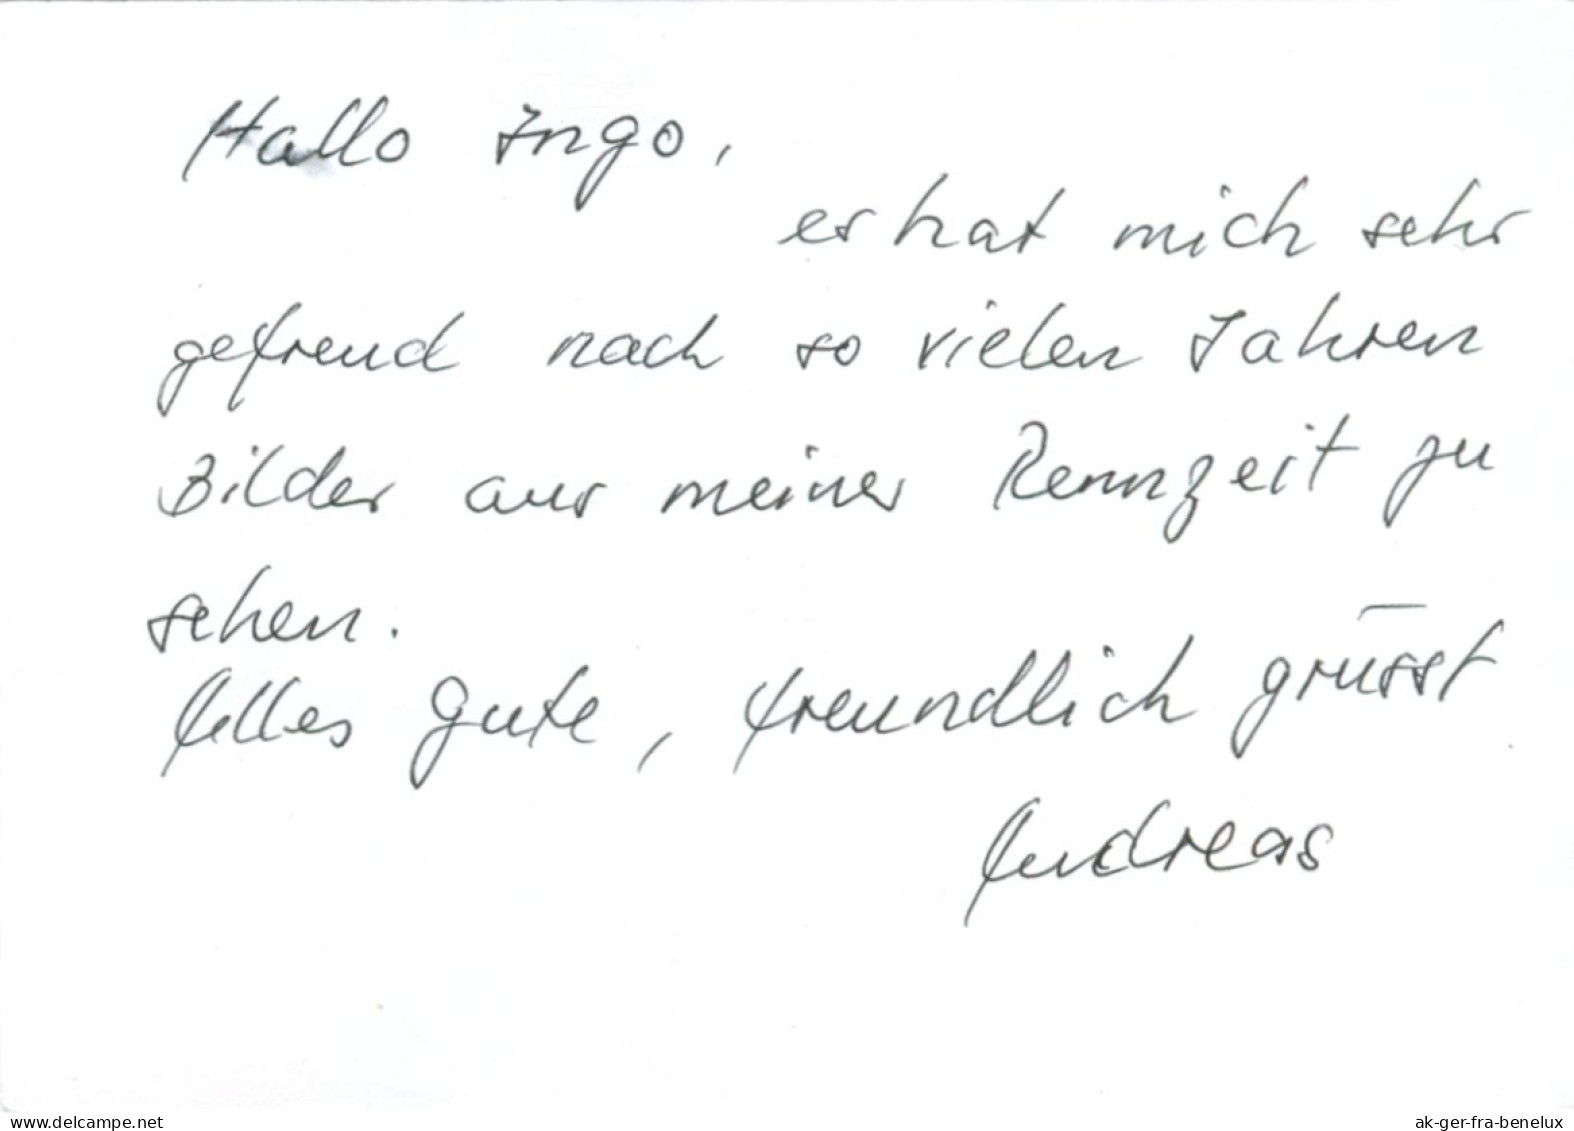 Hallo Ingo,
es hat mich sehr
gefreud nach so vielen Jahren
Bilder aus meiner Rennzeit zu
sehen.
Alles Gute, freundlich grüsst
Andreas
www.delcampe.net
ak-ger-fra-benelux